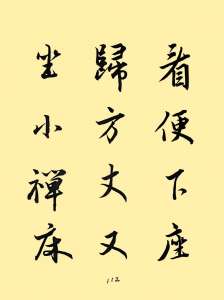 看便下座
歸方丈又
坐小禪床
112